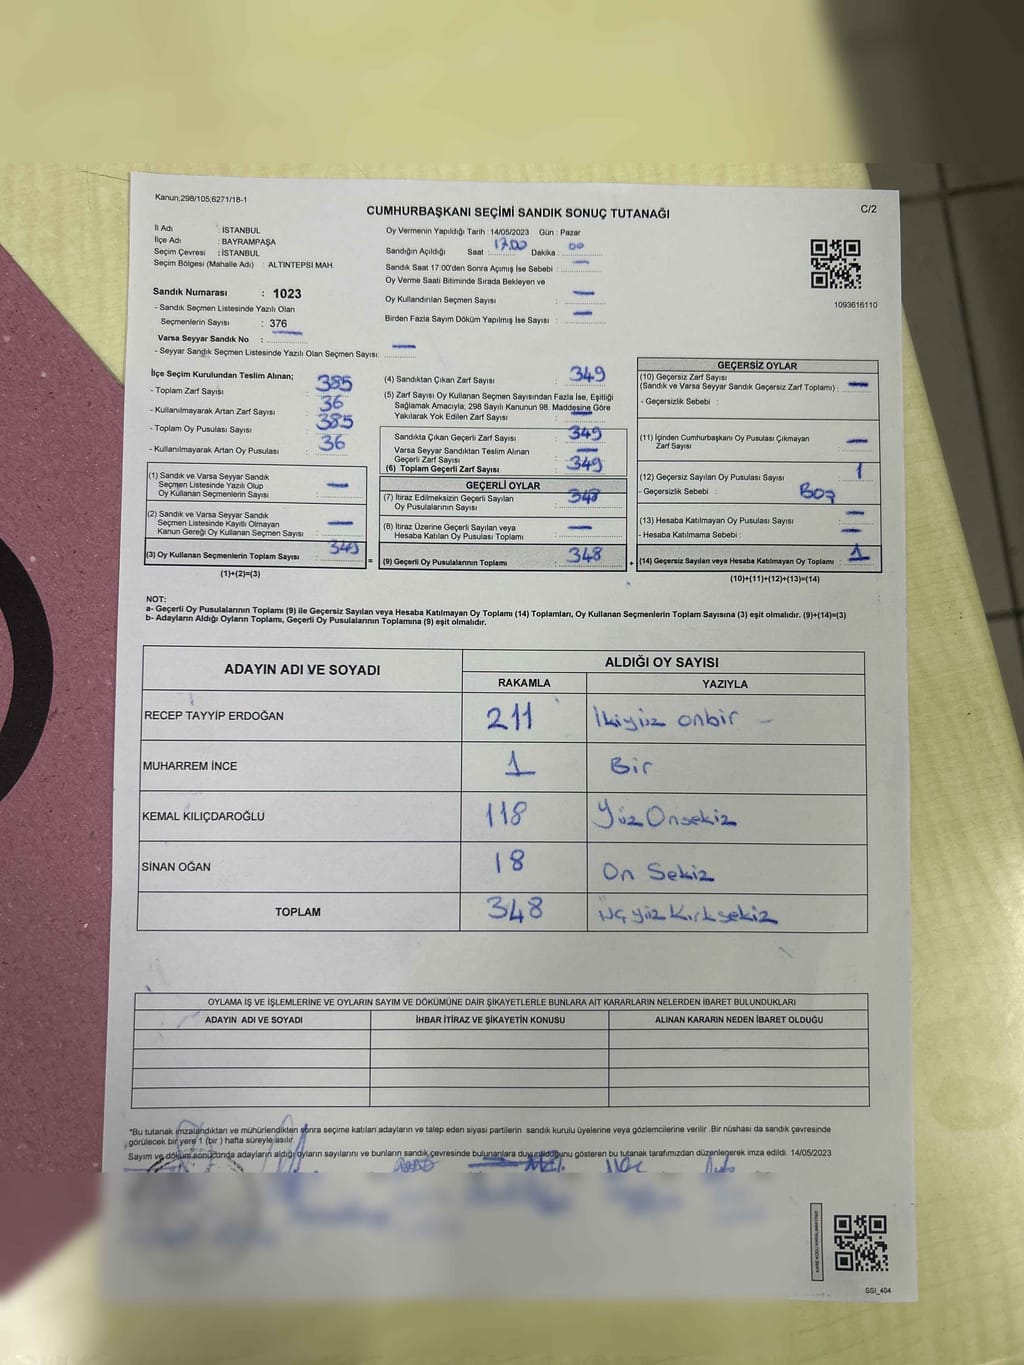 Kanun;298/105;6271/18-1
C/2
CUMHURBAŞKANI SEÇİMİ SANDIK SONUÇ TUTANAĞI
İl Adı : İSTANBUL
İlçe Adı : BAYRAMPAŞA
Seçim Çevresi : İSTANBUL
Seçim Bölgesi (Mahalle Adı) : ALTINTEPSI MAH
Oy Vermenin Yapıldığı Tarih : 14/05/2023 Gün : Pazar
Sandığın Açıldığı Saat : 17.00 Dakika : 00
Sandık Saat 17:00'den Sonra Açımış İse Sebebi : —
Oy Verme Saati Bitiminde Sırada Bekleyen ve
Oy Kullandırılan Seçmen Sayısı : —
Birden Fazla Sayım Döküm Yapılmış İse Sayısı : —
1093616110
Sandık Numarası : 1023
- Sandık Seçmen Listesinde Yazılı Olan
Seçmenlerin Sayısı : 376
Varsa Seyyar Sandık No : —
- Seyyar Sandık Seçmen Listesinde Yazılı Olan Seçmen Sayısı: —
İlçe Seçim Kurulundan Teslim Alınan;
- Toplam Zarf Sayısı : 385
- Kullanılmayarak Artan Zarf Sayısı : 36
- Toplam Oy Pusulası Sayısı : 385
- Kullanılmayarak Artan Oy Pusulası : 36
(1) Sandık ve Varsa Seyyar Sandık
Seçmen Listesinde Yazılı Olup
Oy Kullanan Seçmenlerin Sayısı : —
(2) Sandık ve Varsa Seyyar Sandık
Seçmen Listesinde Kayıtlı Olmayan
Kanun Gereği Oy Kullanan Seçmen Sayısı : —
(3) Oy Kullanan Seçmenlerin Toplam Sayısı : 349
(1)+(2)=(3)
(4) Sandıktan Çıkan Zarf Sayısı : 349
(5) Zarf Sayısı Oy Kullanan Seçmen Sayısından Fazla İse, Eşitliği
Sağlamak Amacıyla; 298 Sayılı Kanunun 98. Maddesine Göre
Yakılarak Yok Edilen Zarf Sayısı : —
Sandıkta Çıkan Geçerli Zarf Sayısı : 349
Varsa Seyyar Sandıktan Teslim Alınan
Geçerli Zarf Sayısı : —
(6) Toplam Geçerli Zarf Sayısı : 349
GEÇERLİ OYLAR
(7) İtiraz Edilmeksizin Geçerli Sayılan
Oy Pusulalarının Sayısı : 348
(8) İtiraz Üzerine Geçerli Sayılan veya
Hesaba Katılan Oy Pusulaları Toplamı : —
= (9) Geçerli Oy Pusulalarının Toplamı : 348
GEÇERSİZ OYLAR
(10) Geçersiz Zarf Sayısı
(Sandık ve Varsa Seyyar Sandık Geçersiz Zarf Toplamı) : —
- Geçersizlik Sebebi :
(11) İçinden Cumhurbaşkanı Oy Pusulası Çıkmayan
Zarf Sayısı : —
(12) Geçersiz Sayılan Oy Pusulası Sayısı : 1
- Geçersizlik Sebebi : Boş
(13) Hesaba Katılmayan Oy Pusulası Sayısı : —
- Hesaba Katılmama Sebebi : —
+ (14) Geçersiz Sayılan veya Hesaba Katılmayan Oy Toplamı : 1
(10)+(11)+(12)+(13)=(14)
NOT:
a- Geçerli Oy Pusulalarının Toplamı (9) ile Geçersiz Sayılan veya Hesaba Katılmayan Oy Toplamı (14) Toplamları, Oy Kullanan Seçmenlerin Toplam Sayısına (3) eşit olmalıdır. (9)+(14)=(3)
b- Adayların Aldığı Oyların Toplamı, Geçerli Oy Pusulalarının Toplamına (9) eşit olmalıdır.
ADAYIN ADI VE SOYADI
ALDIĞI OY SAYISI
RAKAMLA YAZIYLA
RECEP TAYYİP ERDOĞAN 211 İkiyüz onbir —
MUHARREM İNCE 1 Bir
KEMAL KILIÇDAROĞLU 118 Yüz Onsekiz
SİNAN OĞAN 18 On Sekiz
TOPLAM 348 Üçyüz Kırksekiz
OYLAMA İŞ VE İŞLEMLERİNE VE OYLARIN SAYIM VE DÖKÜMÜNE DAİR ŞİKAYETLERLE BUNLARA AİT KARARLARIN NELERDEN İBARET BULUNDUKLARI
ADAYIN ADI VE SOYADI İHBAR İTİRAZ VE ŞİKAYETİN KONUSU ALINAN KARARIN NEDEN İBARET OLDUĞU
*Bu tutanak imzalandıktan ve mühürlendikten sonra seçime katılan adayların ve talep eden siyasi partilerin sandık kurulu üyelerine veya gözlemcilerine verilir. Bir nüshası da sandık çevresinde
görülecek bir yere 1 (bir ) hafta süreyle asılır.
Sayım ve döküm sonucunda adayların aldığı oyların sayılarını ve bunların sandık çevresinde bulunanlara duyurulduğunu gösteren bu tutanak tarafımızdan düzenlenerek imza edildi. 14/05/2023
SSI_404